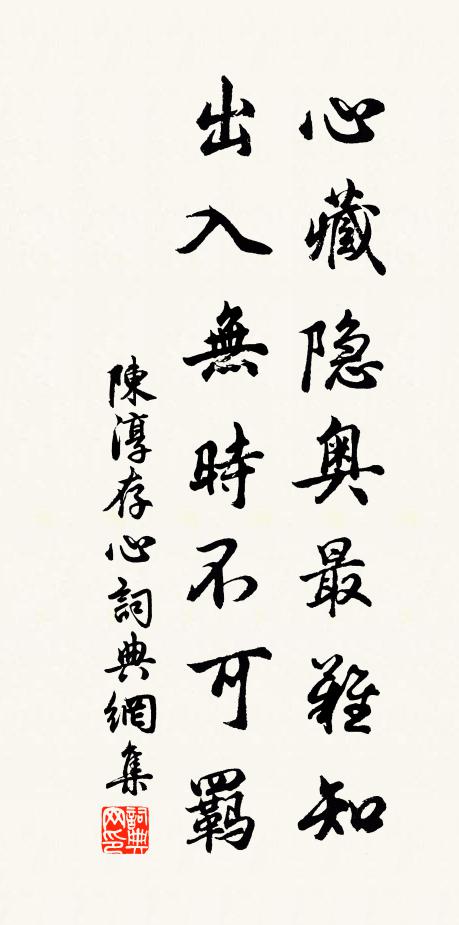 心藏隐奥最難知
出入無時不可羈
陳淳存心詞典網集
詞典网印